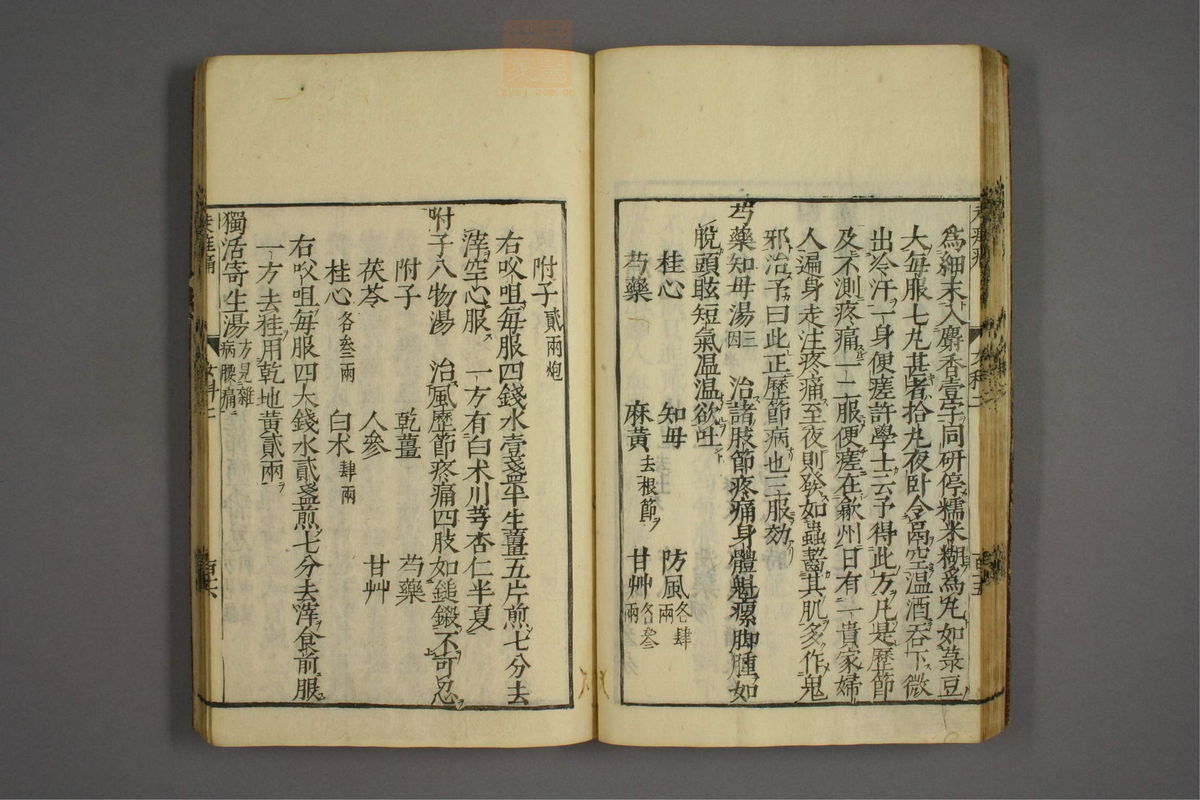 為細末入麝香壹字同研停糯米糊為丸如菉豆
大每服七丸甚者拾丸夜卧令鬲空温酒吞下微
出冷汗一身便瘥許學士云予得此方凡是歷節
及不測疼痛一二服便瘥在歙州日有一貴家婦
人遍身走注疼痛至夜則發如蟲齧其肌多作鬼
邪治予曰此正歷節病也三服效
芍藥知母湯 三因 治諸肢節疼痛身體魁瘰脚腫如
脫頭眩短氣温温欲吐
桂心 知母 防風各肆兩
芍藥 麻黃去根節 甘艸各叁兩
附子貳兩炮
右㕮咀每服四錢水壹盞半生薑五片煎七分去
滓空心服 一方有白术川芎杏仁半夏
附子八物湯 治風歷節疼痛四肢如鎚鍛不可忍
附子 乾薑 芍藥
茯苓 人參 甘艸
桂心各叁兩 白术肆兩
右㕮咀每服四大錢水貳盞煎七分去滓食前服
一方去桂用乾地黃貳兩
獨活寄生湯方見雜病腰痛
女科二
百六